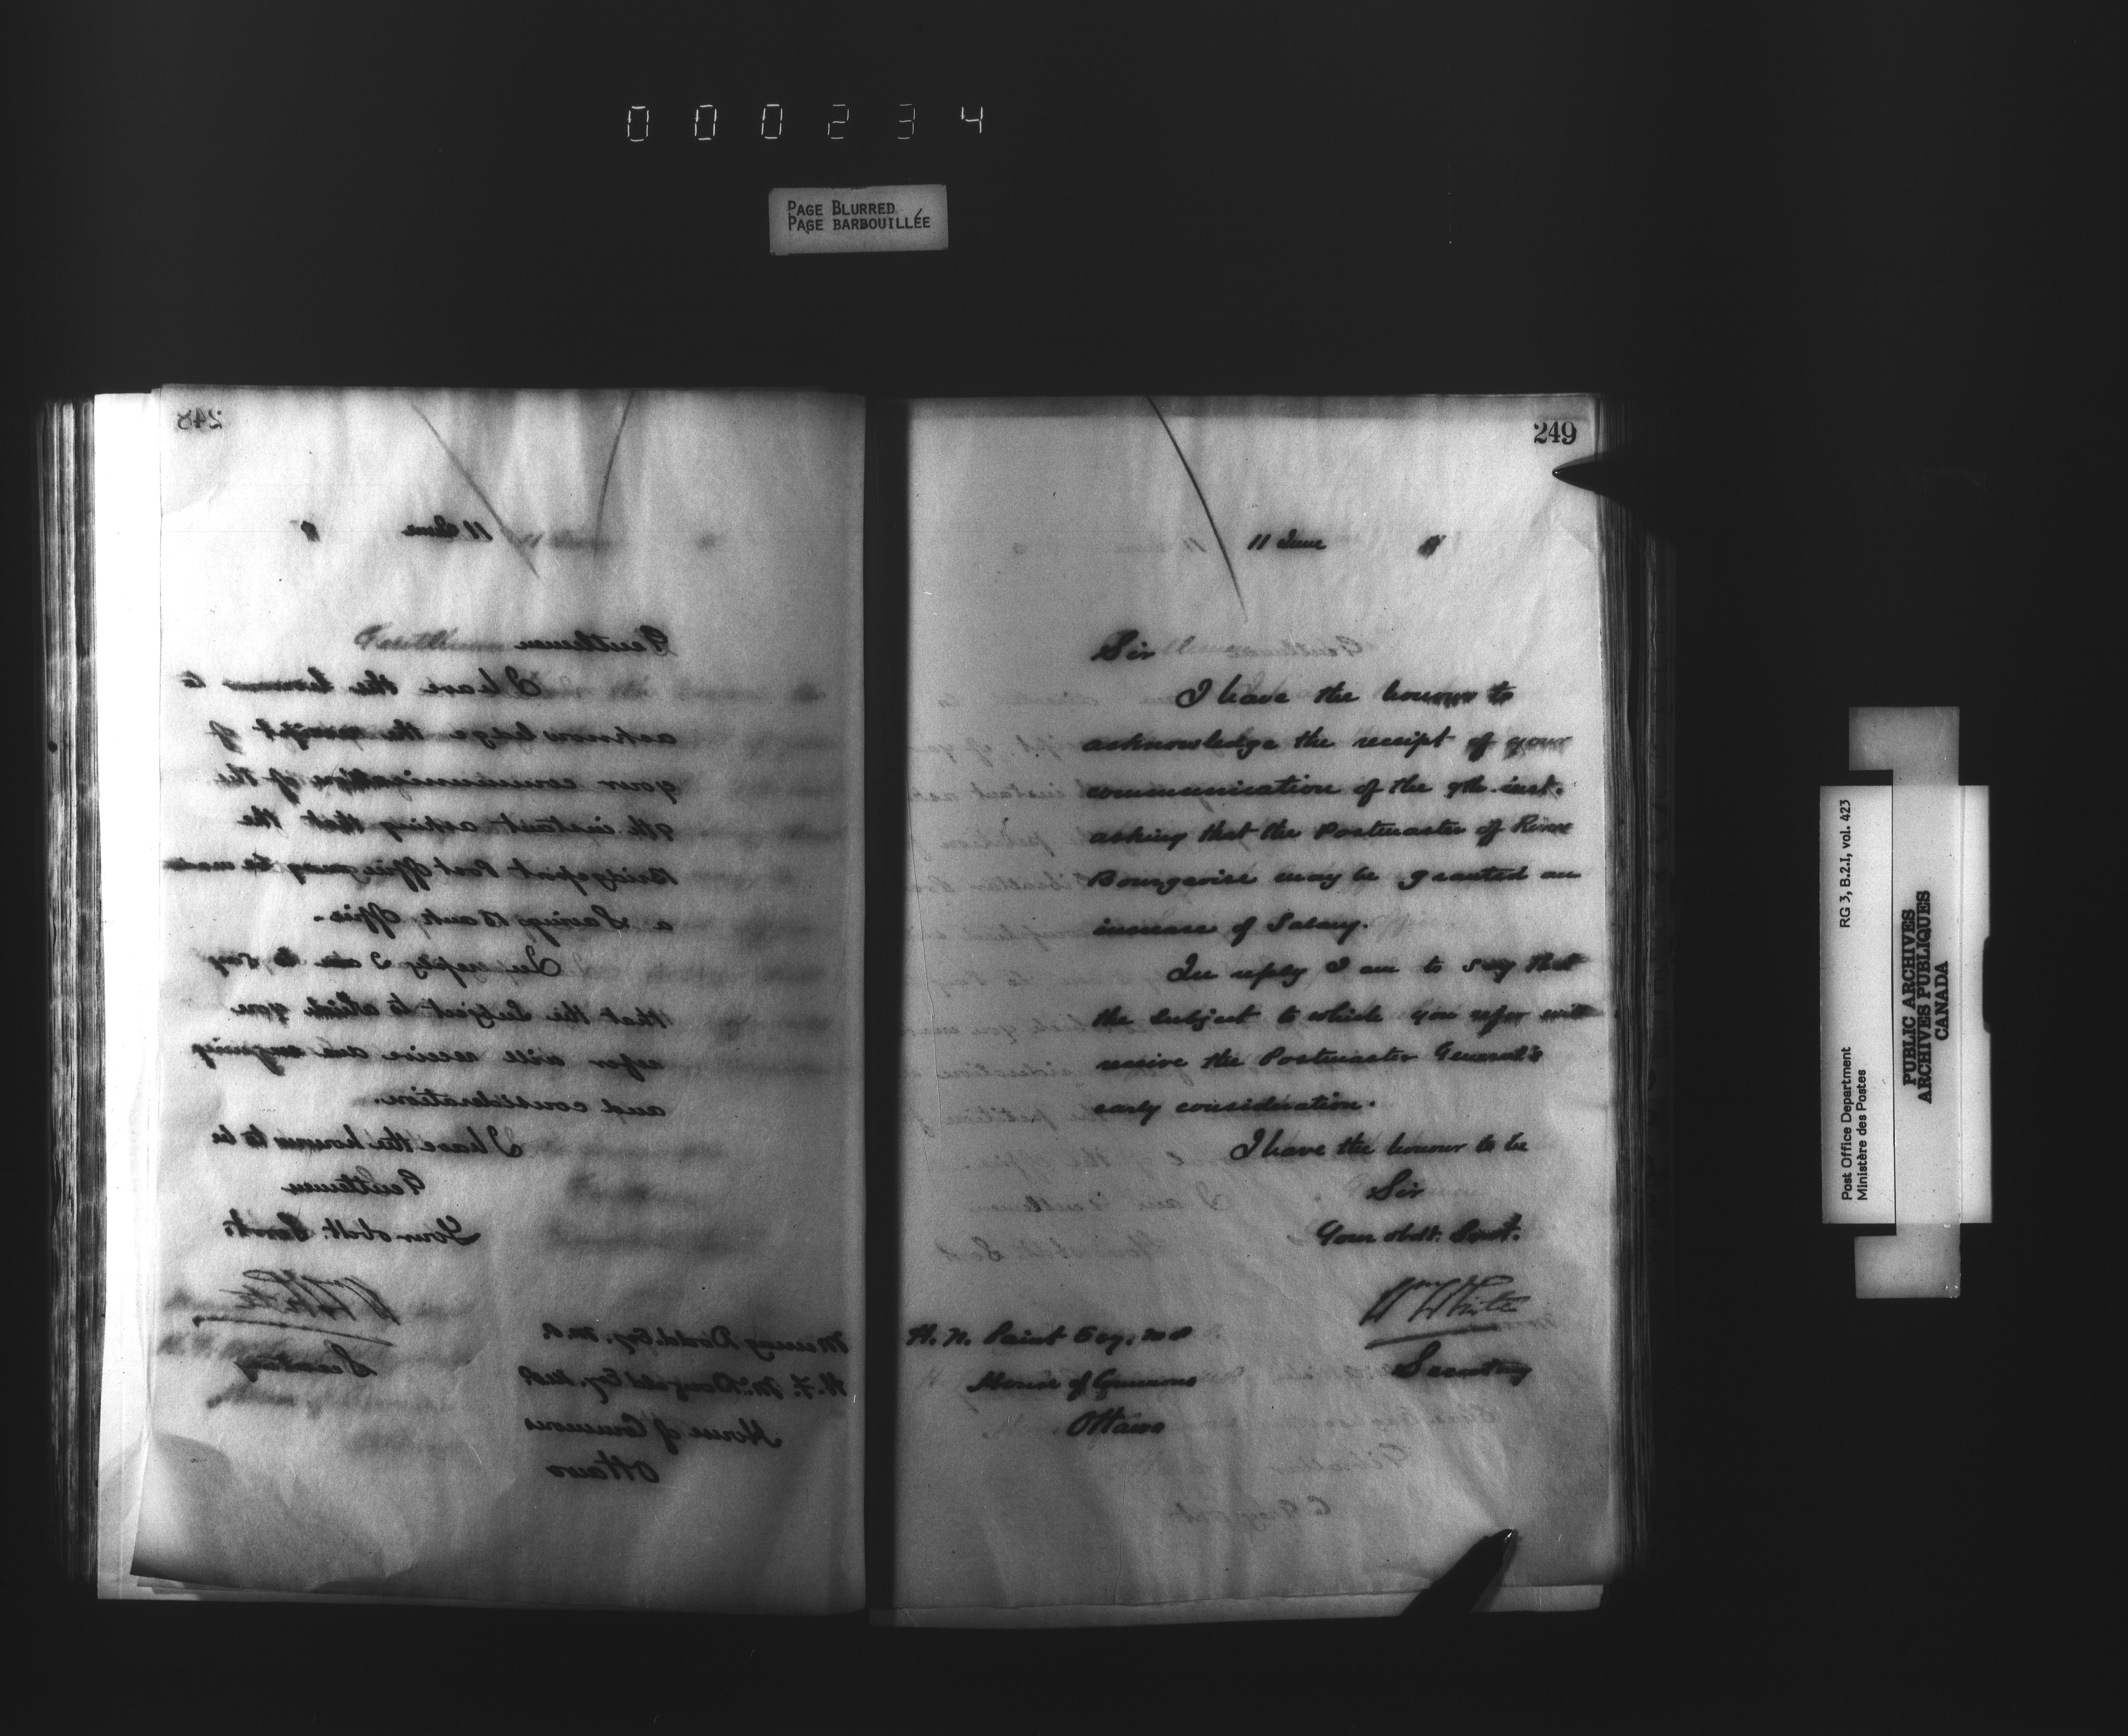 000234
PAGE BLURRED
PAGE BARBOUILLÉE
248
11 June 8
Gentlemen
I have the honour to
acknowledge the receipt of
your communication of the
9th instant asking that the
Bridgeport Post Office may be made
a Savings Bank Office.
In reply I am to say
that the subject to which you
refer will receive an enquiry
and consideration.
I have the honour to be
Gentlemen
Your obdt. Servt.
Wm White
Secretary
Murray Dodd Esq. M.P.
H. F. McDougald Esq. M.P.
House of Commons
Ottawa
249
11 June
Sir
I have the honour to
acknowledge the receipt of your
communication of the 9th inst.
asking that the Postmaster of River
Bourgeoise may be granted an
increase of Salary.
In reply I am to say that
the subject to which you refer will
receive the Postmaster General's
early consideration.
I have the honour to be
Sir
Your obdt. Servt.
Wm White
Secretary
H. N. Paint Esq. M P
House of Commons
Ottawa
Post Office Department RG 3, B.2.I, vol. 423
Ministère des Postes
PUBLIC ARCHIVES
ARCHIVES PUBLIQUES
CANADA